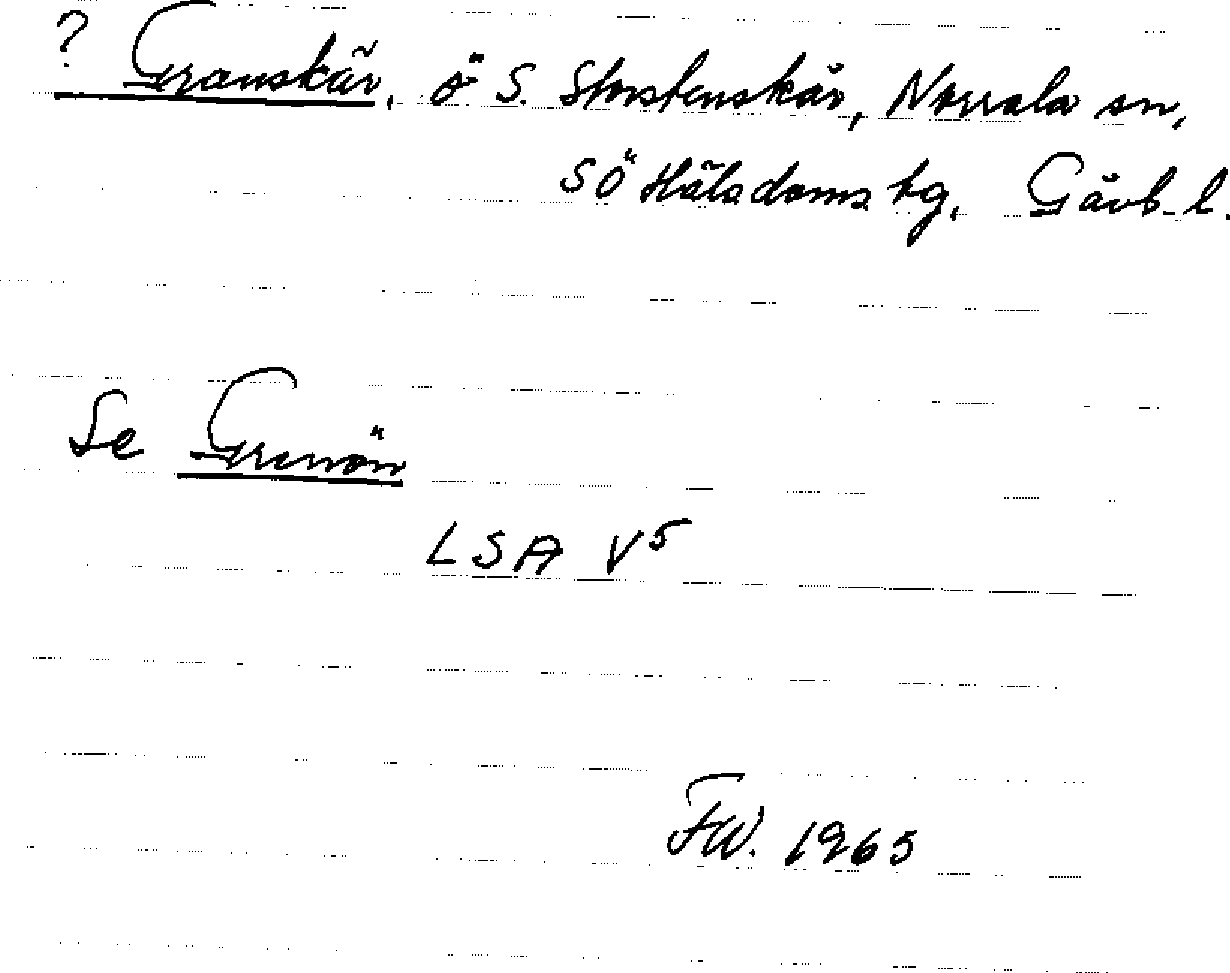 ? Granskär, ö S. Storstenskär, Norrala sn,
SÖ Hälsdoms tg, Gävb. l.
Se Grenön
LSA V5
FW. 1965